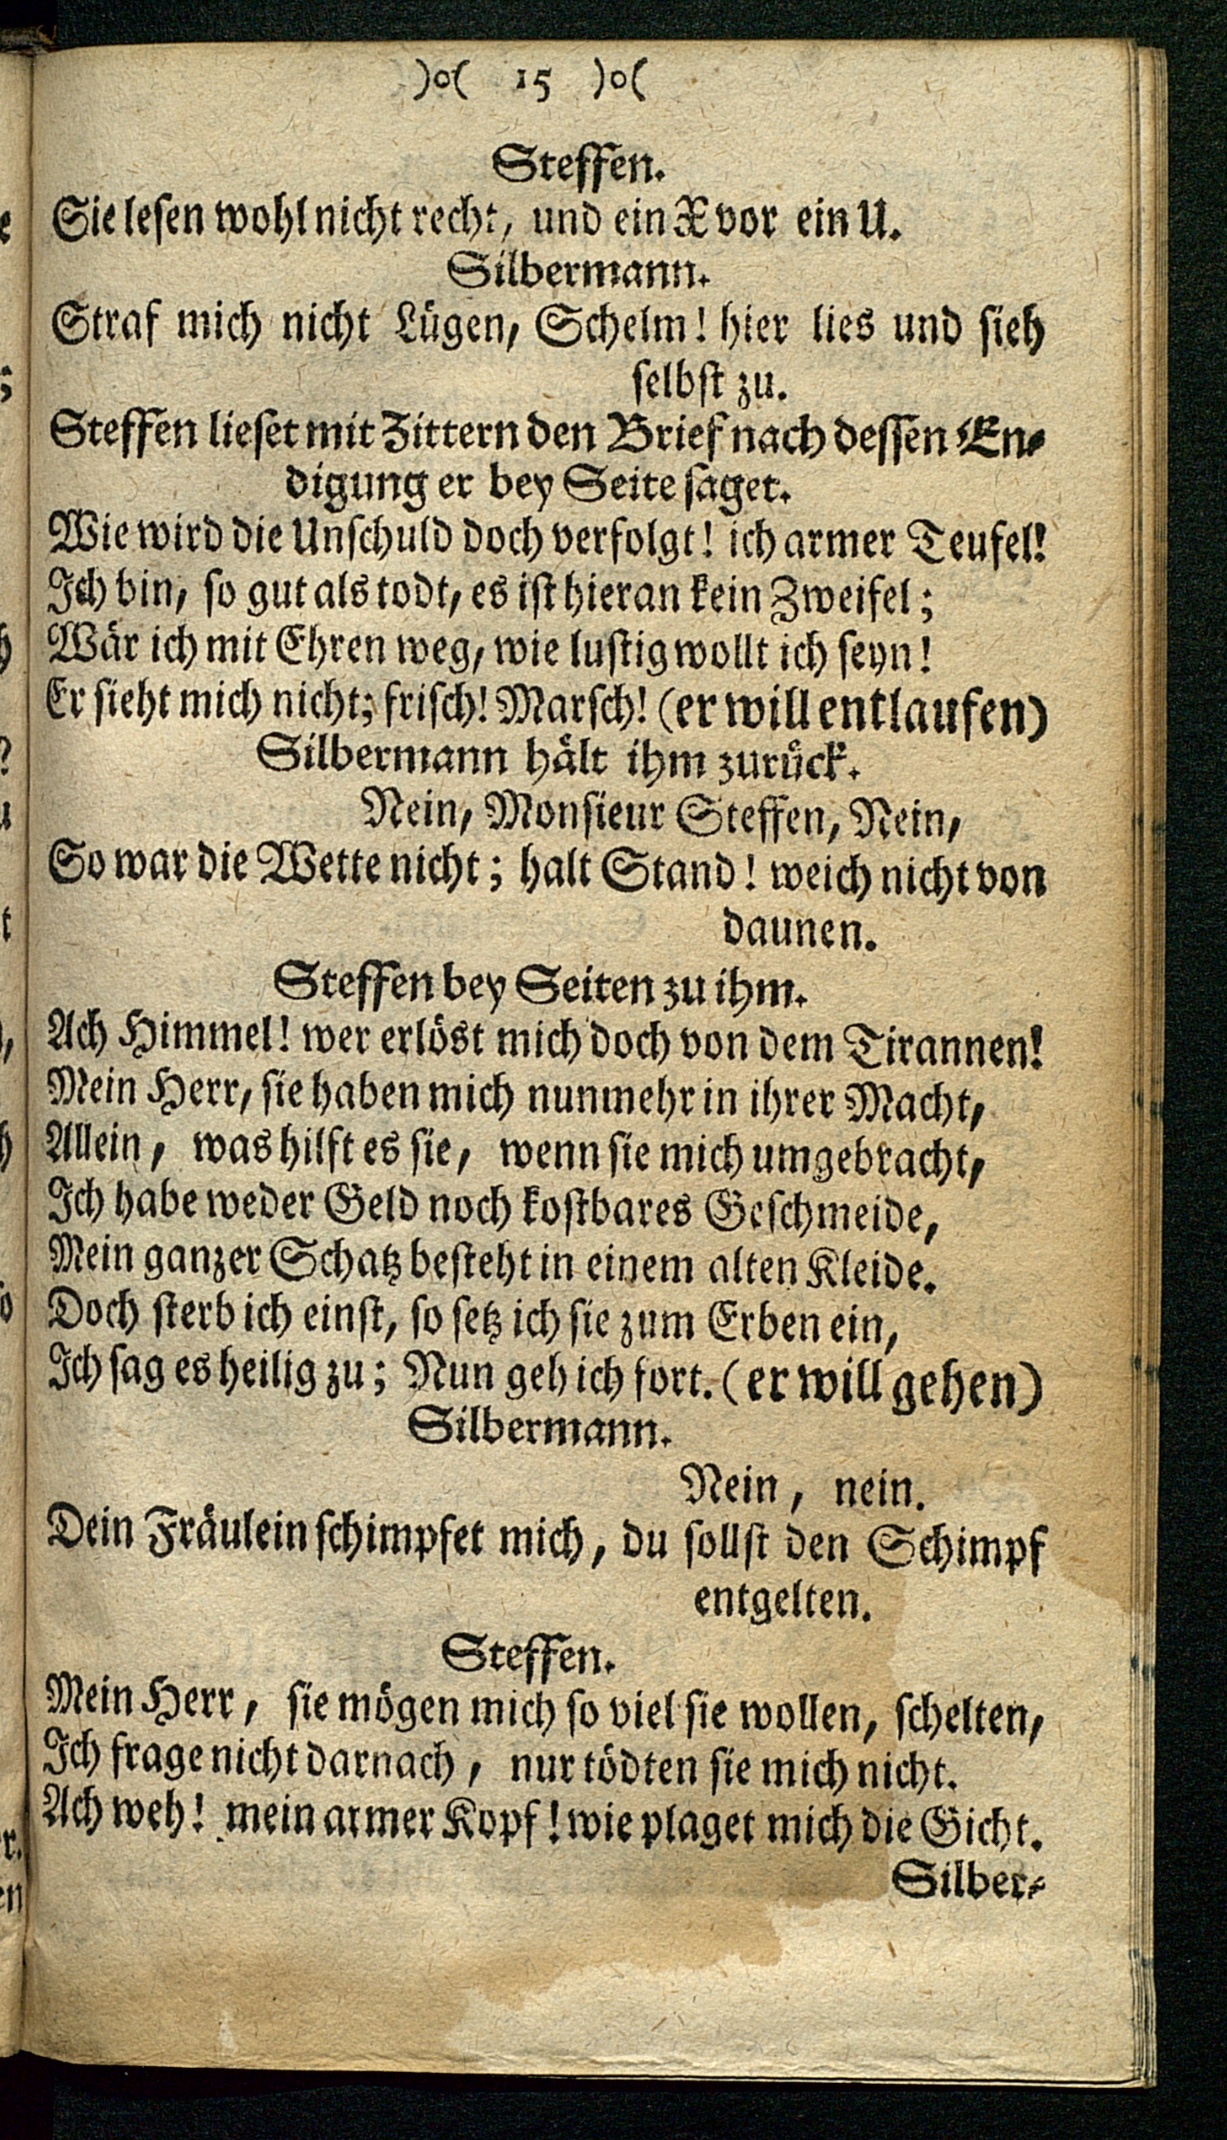 )o( 15 )o(
Steffen.
Sie lesen wohl nicht recht, und ein X vor ein U.
Silbermann.
Straf mich nicht Lügen, Schelm! hier lies und sieh
selbst zu.
Steffen lieset mit Zittern den Brief nach dessen En-
digung er bey Seite saget.
Wie wird die Unschuld doch verfolgt! ich armer Teufel!
Ich bin, so gut als todt, es ist hieran kein Zweifel;
Wär ich mit Ehren weg, wie lustig wollt ich seyn!
Er sieht mich nicht; frisch! Marsch! (er will entlaufen)
Silbermann hält ihm zurück.
Nein, Monsieur Steffen, Nein,
So war die Wette nicht; halt Stand! weich nicht von
daunen.
Steffen bey Seiten zu ihm.
Ach Himmel! wer erlöst mich doch von dem Tirannen!
Mein Herr, sie haben mich nunmehr in ihrer Macht,
Allein, was hilft es sie, wenn sie mich umgebracht,
Ich habe weder Geld noch kostbares Geschmeide,
Mein ganzer Schatz besteht in einem alten Kleide.
Doch sterb ich einst, so setz ich sie zum Erben ein,
Ich sag es heilig zu; Nun geh ich fort. (er will gehen)
Silbermann.
Nein, nein.
Dein Fräulein schimpfet mich, du sollst den Schimpf
entgelten.
Steffen.
Mein Herr, sie mögen mich so viel sie wollen, schelten,
Ich frage nicht darnach, nur tödten sie mich nicht.
Ach weh! mein armer Kopf! wie plaget mich die Gicht.
Silber-